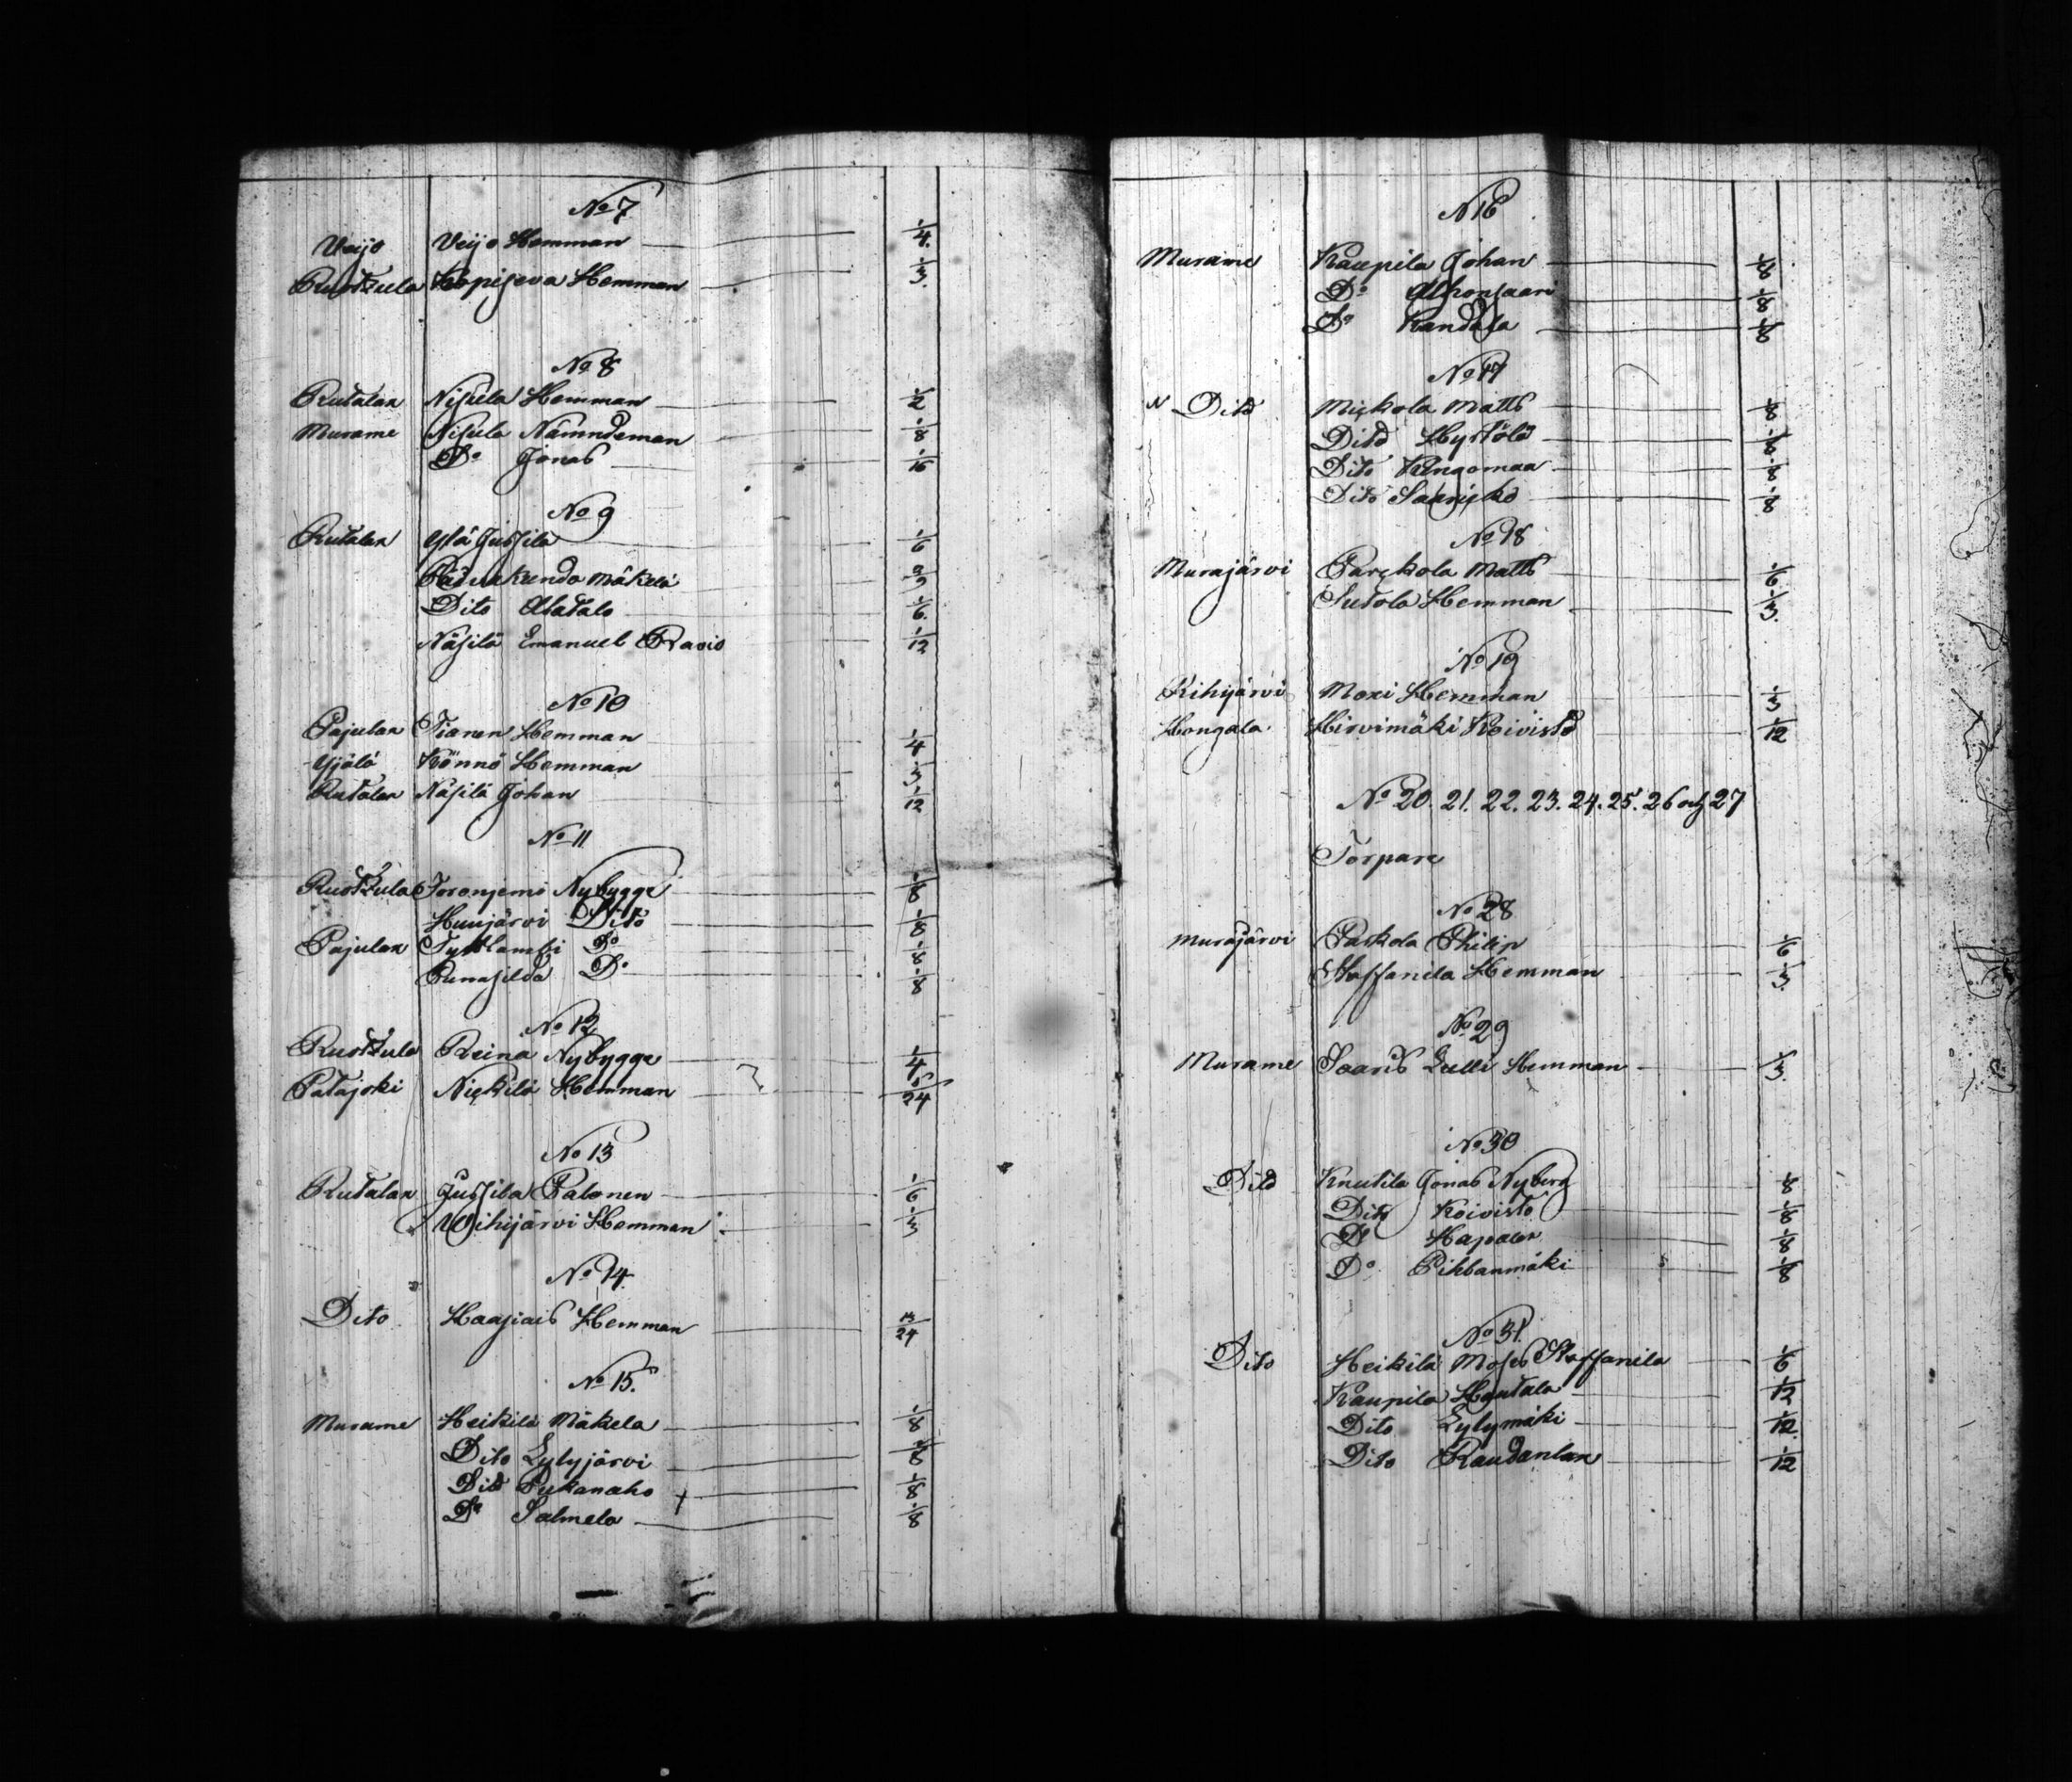 No 7
Veijo Veijo Hemman 1/4.
Ruotzula Hemman 1/3.
No 8
Rutalax Nisula Hemman 1/2
Murame Nisula Nämndeman 1/8
Do Jonas 1/16
No 9
Rutalax Ylä Jussila 1/6
Mäkelä 2/9
Dito Alatalo 1/6.
Näsilä Emanuel 1/12
No 10
Pajulax Tianen Hemman 1/4
Yijälä Könnö Hemman 1/3
Rutalax Näsilä Johan 1/12
No 11
Ruotzula Toronjemi Nybygge 1/8
Huujärvi Dito 1/8
Pajulax Do 1/8
Punasilda Do 1/8
No 12
Ruotzula Reina Nybygge 1/4
Patajoki Nickilä Hemman 5/24
No 13
Rutalax Jussila Palonen 1/6
Wihijärvi Hemman 1/3
No 14.
Dito Haapiais Hemman 13/24
No 15.
Murame Heikilä Mäkela 1/8
Dito Lylyjärvi 1/8
Dito Pukanaho 1/8
Do Salmela 1/8
N 16
Murame Kaupila Johan 1/8
Do Ahponsaari 1/8
Do Randala 1/8
No 17
Dito Mickola Matts 1/8
Dito Hyrtölä 1/8
Dito Kangomaa 1/8
Dito 1/8
No 18
Murajärvi Parckola Matts 1/6
Sutola Hemman 1/3.
No 19
Kihijärvi Moxi Hemman 1/3
Hongala Hirvimäki Koivisto 1/12
No 20. 21. 22. 23. 24. 25. 26 och 27
Torpare
No 28
Murajärvi Parkola Philip 1/6
Staffanila Hemman 1/3.
No 29
Murame Saaris Lulli Hemman 1/3.
No 30
Dito Knutila Jonas Nyberg 1/8
Dito Koivisto 1/8
Do Hapalax 1/8
Do Pihlanmäki 1/8
No 31.
Dito Heikilä Moses Staffanila 1/6
Kaupila Hautala 1/12
Dito Lylymäki 1/12.
Dito Raudanlax 1/12